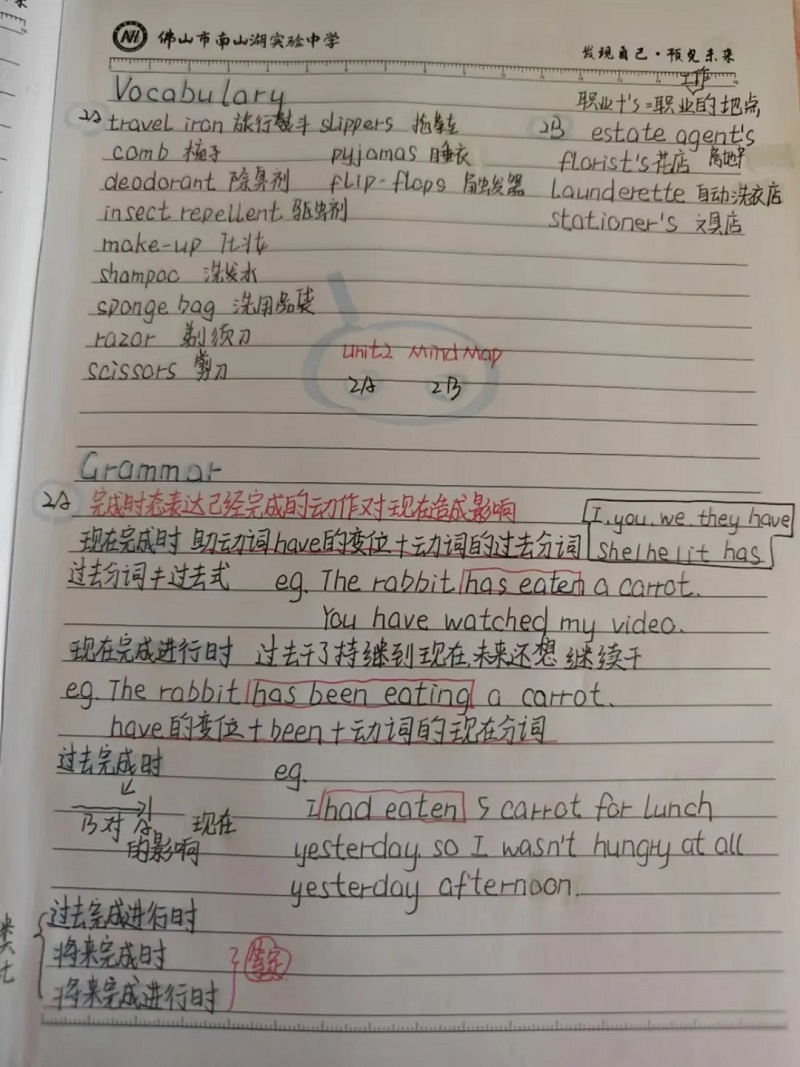 佛山市南山湖实验中学
发现自己·预见未来
Vocabulary
工作
职业+'s=职业的地点
2A travel iron 旅行熨斗 slippers 拖鞋
2B estate agent's
comb 梳子 pyjamas 睡衣
florist's 花店
deodorant 除臭剂 flip-flops
Launderette 自动洗衣店
insect repellent 驱虫剂
stationer's 文具店
make-up 化妆
shampoo 洗发水
sponge bag 洗用品袋
razor 剃须刀
Unit2 Mind Map
scissors 剪刀
2A 2B
Grammar
2A 完成时态表达已经完成的动作对现在造成影响
I, you, we, they have
现在完成时 助动词have的变位+动词的过去分词
she|he|it has
过去分词≠过去式 eg. The rabbit has eaten a carrot.
You have watched my video.
现在完成进行时 过去干了持继到现在,未来还想继续干
eg. The rabbit has been eating a carrot.
have的变位+been+动词的现在分词
过去完成时 eg.
I had eaten 5 carrot for lunch
B对A 现在
的影响
yesterday, so I wasn't hungry at all
yesterday afternoon.
过去完成进行时
将来完成时
将来完成进行时